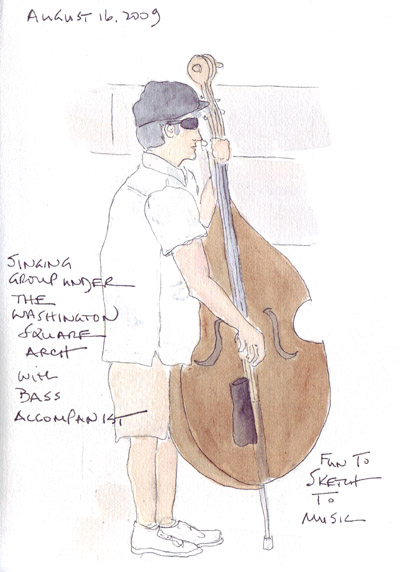 AUGUST 16, 2009
SINGING
GROUP UNDER
THE
WASHINGTON
SQUARE
ARCH
WITH
BASS
ACCOMPANIST
FUN TO
SKETCH
TO
MUSIC